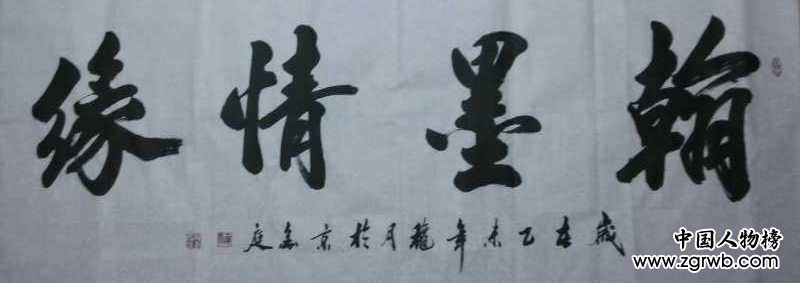 翰墨情缘
岁在乙未年龙月於京鑫庭
中国人物榜
www.zgrwb.com